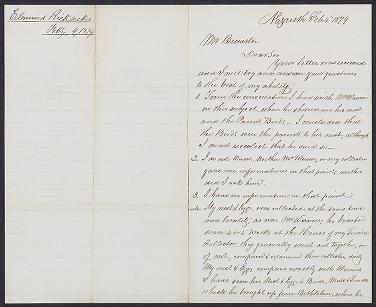 Edmund Ricksecker
Feby 4, 1879
Nazareth Feb 5 1879
Mr Brewster
Dear Sir
Your letter was received
and I will try and answer your questions
to the best of my ability.
1. From the conversation I had with Mr Warner
on this subject, when he showed me his nest
and the Parent Birds - I concluded that
the Birds were the parents to his nest, although
I do not recollect that he said so -
2. I do not know, neither Mr Warner, or any collector
gave me information on that point, neither
did I ask him.
3. I have no information on that point.
4. My nest & Eggs was collected at the same time
and locality, as was Mr Warner's, he boarded
some 4 or 5 weeks at the House of my
Collector, they generally went out together, or
if not, compared & examined their collection daily
My nest & Eggs compare exactly with Warner's
I have seen his Nest & Eggs & Birds, Male & Female
which he brought up from Bethlehem, when he